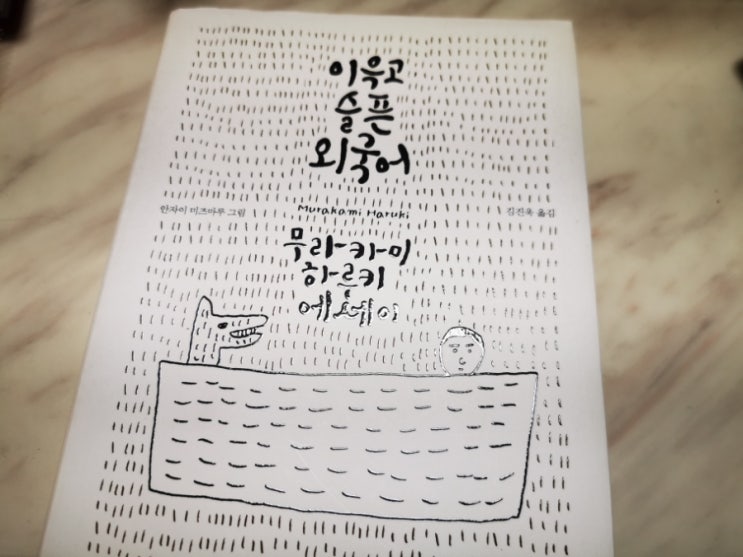 이윽고
슬픈
외국어
안자이 미즈마루 그림
Murakami Haruki
김진욱 옮김
무라카미
하루키
에세이